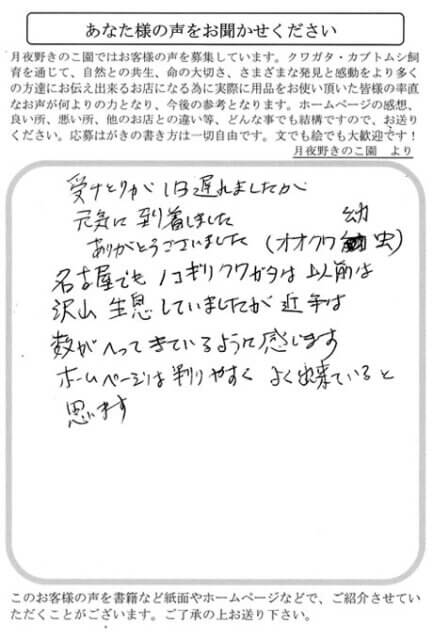 あなた様の声をお聞かせください
月夜野きのこ園ではお客様の声を募集しています。クワガタ・カブトムシ飼
育を通じて、自然との共生、命の大切さ、さまざまな発見と感動をより多く
の方達にお伝え出来るお店になる為に実際に用品をお使い頂いた皆様の率直
なお声が何よりの力となり、今後の参考となります。ホームページの感想、
良い所、悪い所、他のお店との違い等、どんな事でも結構ですので、お送り
ください。応募はがきの書き方は一切自由です。文でも絵でも大歓迎です！
月夜野きのこ園　より
受けとりが　は遅れましたが
元気に到着しました
ありがとうございました（オオクワ幼虫）
名古屋でもノコギリクワガタは以前は
沢山生息していましたが近年は
数がへってきているように感じます
ホームページは判りやすくよく出来ていると
思います
このお客様の声を書籍など紙面やホームページなどで、ご紹介させてい
ただくことがございます。ご了承の上お送り下さい。